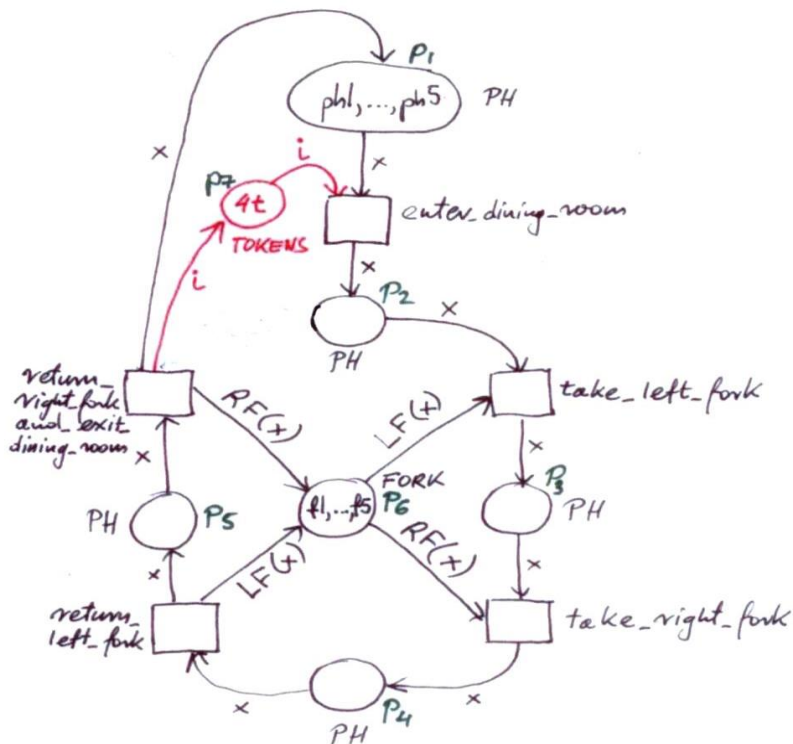 P1
ph1,...,ph5
PH
x
x
i
P7
4t
TOKENS
enter_dining_room
i
x
P2
x
PH
return_
right_fork
and_exit_
dining_room
take_left_fork
RF(x)
LF(x)
x
x
FORK
f1,...,f5
P6
P3
PH
PH
P5
RF(x)
LF(x)
x
x
return_
left_fork
take_right_fork
x
x
P4
PH